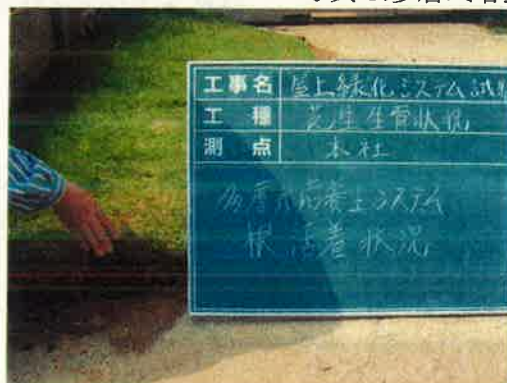 工事名 屋上緑化システム試験
工種 芝生生育状況
測点 本社
多層式荷養土システム
根活着状況